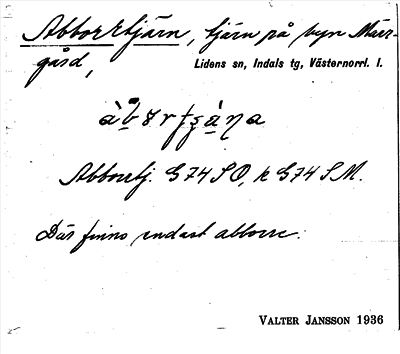 Abborrtjärn, tjärn på byn Märr-
gård,
Lidens sn, Indals tg, Västernorrl. l.
Abborrtj. G74SO, k G74SM.
Där finns endast abborre.
VALTER JANSSON 1936